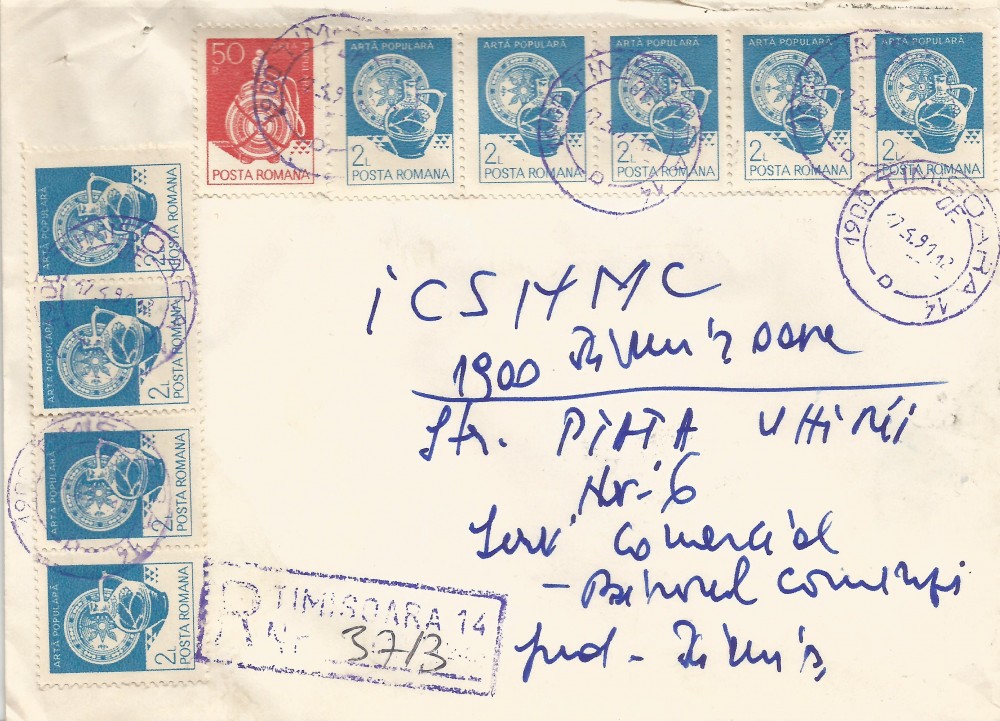 50
P
ARTĂ POPULARĂ
POSTA ROMANA
ARTĂ POPULARĂ
2L
POSTA ROMANA
ARTĂ POPULARĂ
2L
POSTA ROMANA
ARTĂ POPULARĂ
2L
POSTA ROMANA
ARTĂ POPULARĂ
2L
POSTA ROMANA
ARTĂ POPULARĂ
2L
POSTA ROMANA
1900 TIMISOARA 14
OF.
17.5.91.12
D
ARTĂ POPULARĂ
2L
POSTA ROMANA
ARTĂ POPULARĂ
2L
POSTA ROMANA
ARTĂ POPULARĂ
2L
POSTA ROMANA
ARTĂ POPULARĂ
2L
POSTA ROMANA
ICSITMC
1900 Timișoara
Str. PIATA UNIRII
Nr. 6
Serv Comercial
- Biroul Comenzi
jud. Timiș
R TIMISOARA 14
Nr 37/3